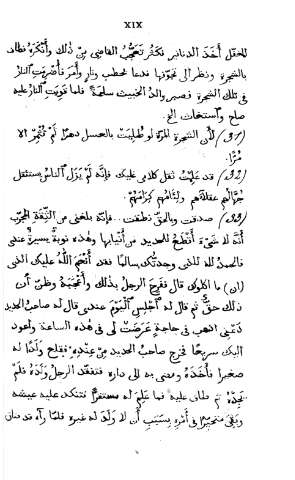 XIX
للمغفل أَخَذَ الدنانير فكَثُرَ تَعَجُّبُ القاضى مِنْ ذلك وأَنْكَرَهُ فطاف
بالشجرة ونظر الى تجوّفها فدعا بحطب ونارٍ وأَمَرَ فأُضْرِبَتِ النارُ
فى تلك الشجرة فصبر والدُ الخبيث ساعةً فلما قَوِيَتِ النارُ عليه
صاح واستغاث الخ
(31) لأن الشجرة المُرّة لو طُلِيَتْ بالعسل دهرًا لم تُثْمِرْ الا
مُرًّا
(32) قد عَلِمْتُ ثقل كلامى عليك فإنّه لَمْ يَزَلِ الناسُ تستثقل
جُهّالُهم عقلاءَهم ولِئَامُهم كِرَامَهُمْ
(33) صدقت وبالحق نطقت .. فإنّه بلغنى من الثِقَة المُجَرَّب
أنّه لا شىء أَقْطَعُ للحديد من أنيابها وهذه نوبةٌ يسيرةٌ عندى
فالحمدُ لله الذى وجدتُك سالمًا فقد أَنْعَمَ اللّهُ عليك الذى
(ان) ما اكلوك قال ففَرِحَ الرجلُ بذلك وأَعْجَبَهُ وظنّ أن
ذلك حقٌّ ثم قال له اجْلِسِ اليَوْمَ عندى قال له صاحبُ الحديد
دَعْنى اذهب فى حاجةٍ عَرَضَتْ لى فى هذه الساعة واعود
اليك سريعًا فخرج صاحبُ الحديد مِنْ عِنْدِه فلقى وَلَدًا له
صغيرا فأَخَذَهُ ومضى به الى داره فتفقّد الرجلُ وَلَدَهُ فلمْ
يَجِدْهُ ثم طاف عليه فما عَلِمَ له مستقرًّا فتنكّد عليه عيشه
وبَقِىَ متحيّرًا فى أَمْرِه بِسَبَبِ أن لا وَلَدَ له غيره فلمّا رآه قد ضاق